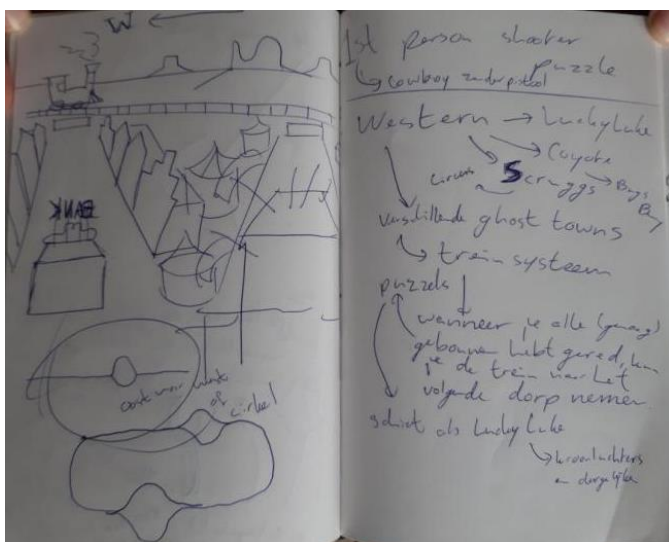 W
BANK
oost naar west
of
cirkel
1st person shooter
puzzle
↳ Cowboy zonder pistool
Western → Lucky Luke
→ Coyote
→ Bugs
Bunny
→ Scruggs
Circus
verschillende ghost towns
↳ trein systeem
puzzels
wanneer je alle (genoeg)
gebouwen hebt gered, kan
je de trein naar het
volgende dorp nemen.
schiet als Lucky Luke
↳ kroonluchters
en dergelijke